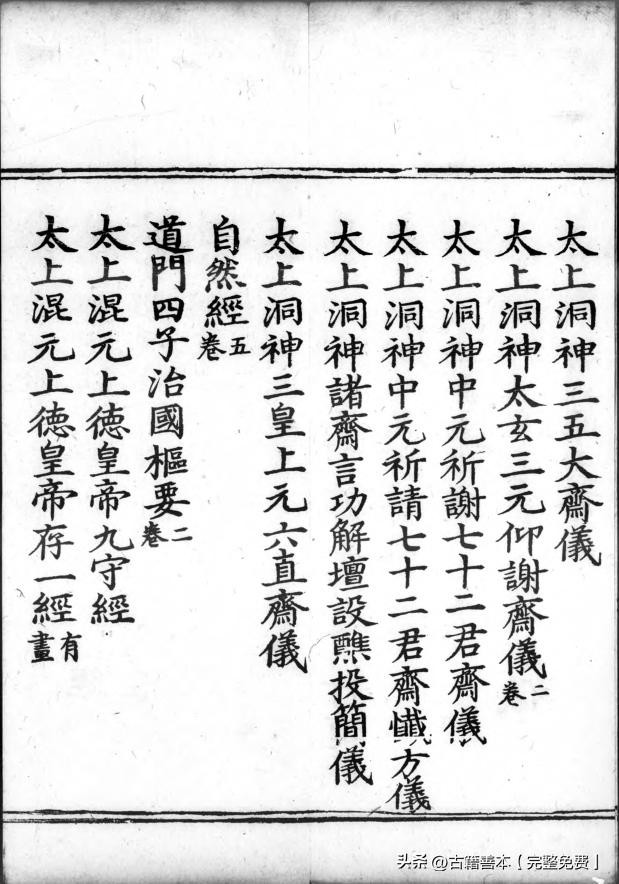 太上洞神三五大齋儀
太上洞神太玄三元仰謝齋儀二卷
太上洞神中元祈謝七十二君齋儀
太上洞神中元祈請七十二君齋懺方儀
太上洞神諸齋言功解壇設醮投簡儀
太上洞神三皇上元六直齋儀
自然經五卷
道門四子治國樞要二卷
太上混元上德皇帝九守經
太上混元上德皇帝存一經有畫
头条 @古籍善本【完整免费】